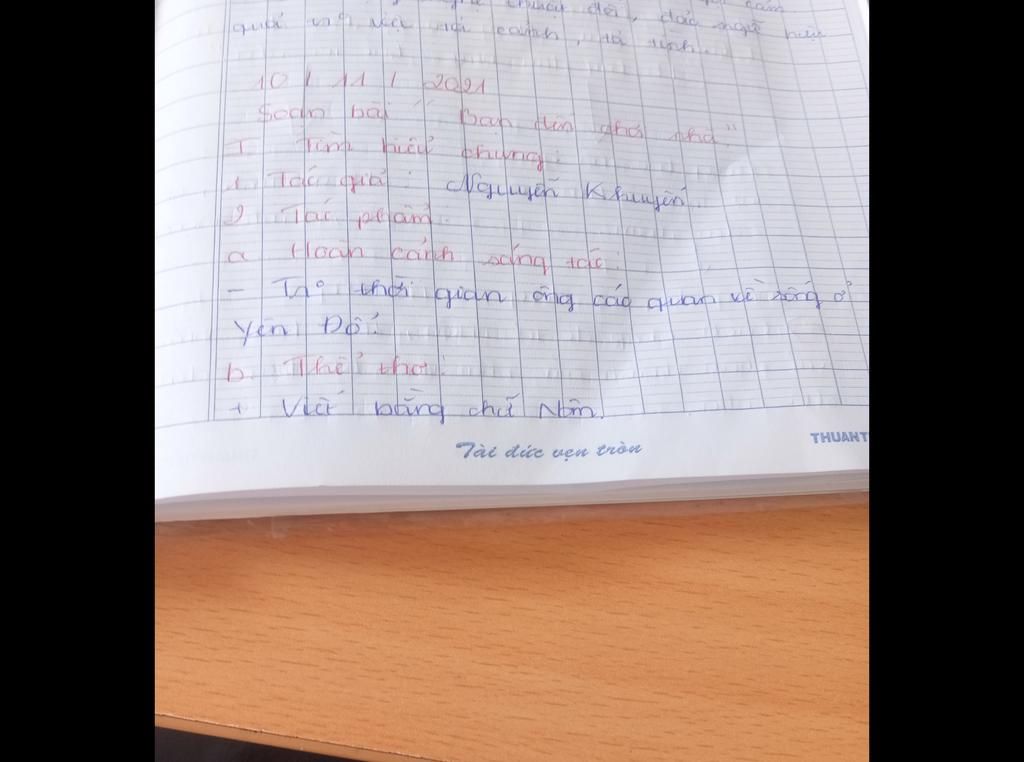 thuật đối, đảo ngữ hiệu
quả và tả cảnh, tả tình.
10 / 11 / 2021
Soạn bài " Bạn đến chơi nhà"
I Tìm hiểu chung:
1 Tác giả: Nguyễn Khuyến.
2 Tác phẩm.
a Hoàn cảnh sáng tác:
- thời gian ông cáo quan về sống ở
Yên Đổ.
b Thể thơ:
+ Viết bằng chữ Nôm.
Tài đức vẹn tròn
THUAHT